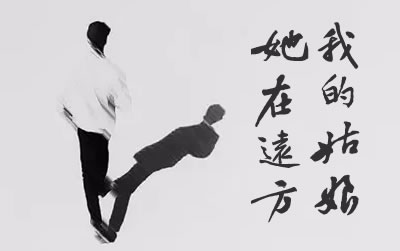 我的姑娘
她在遠方